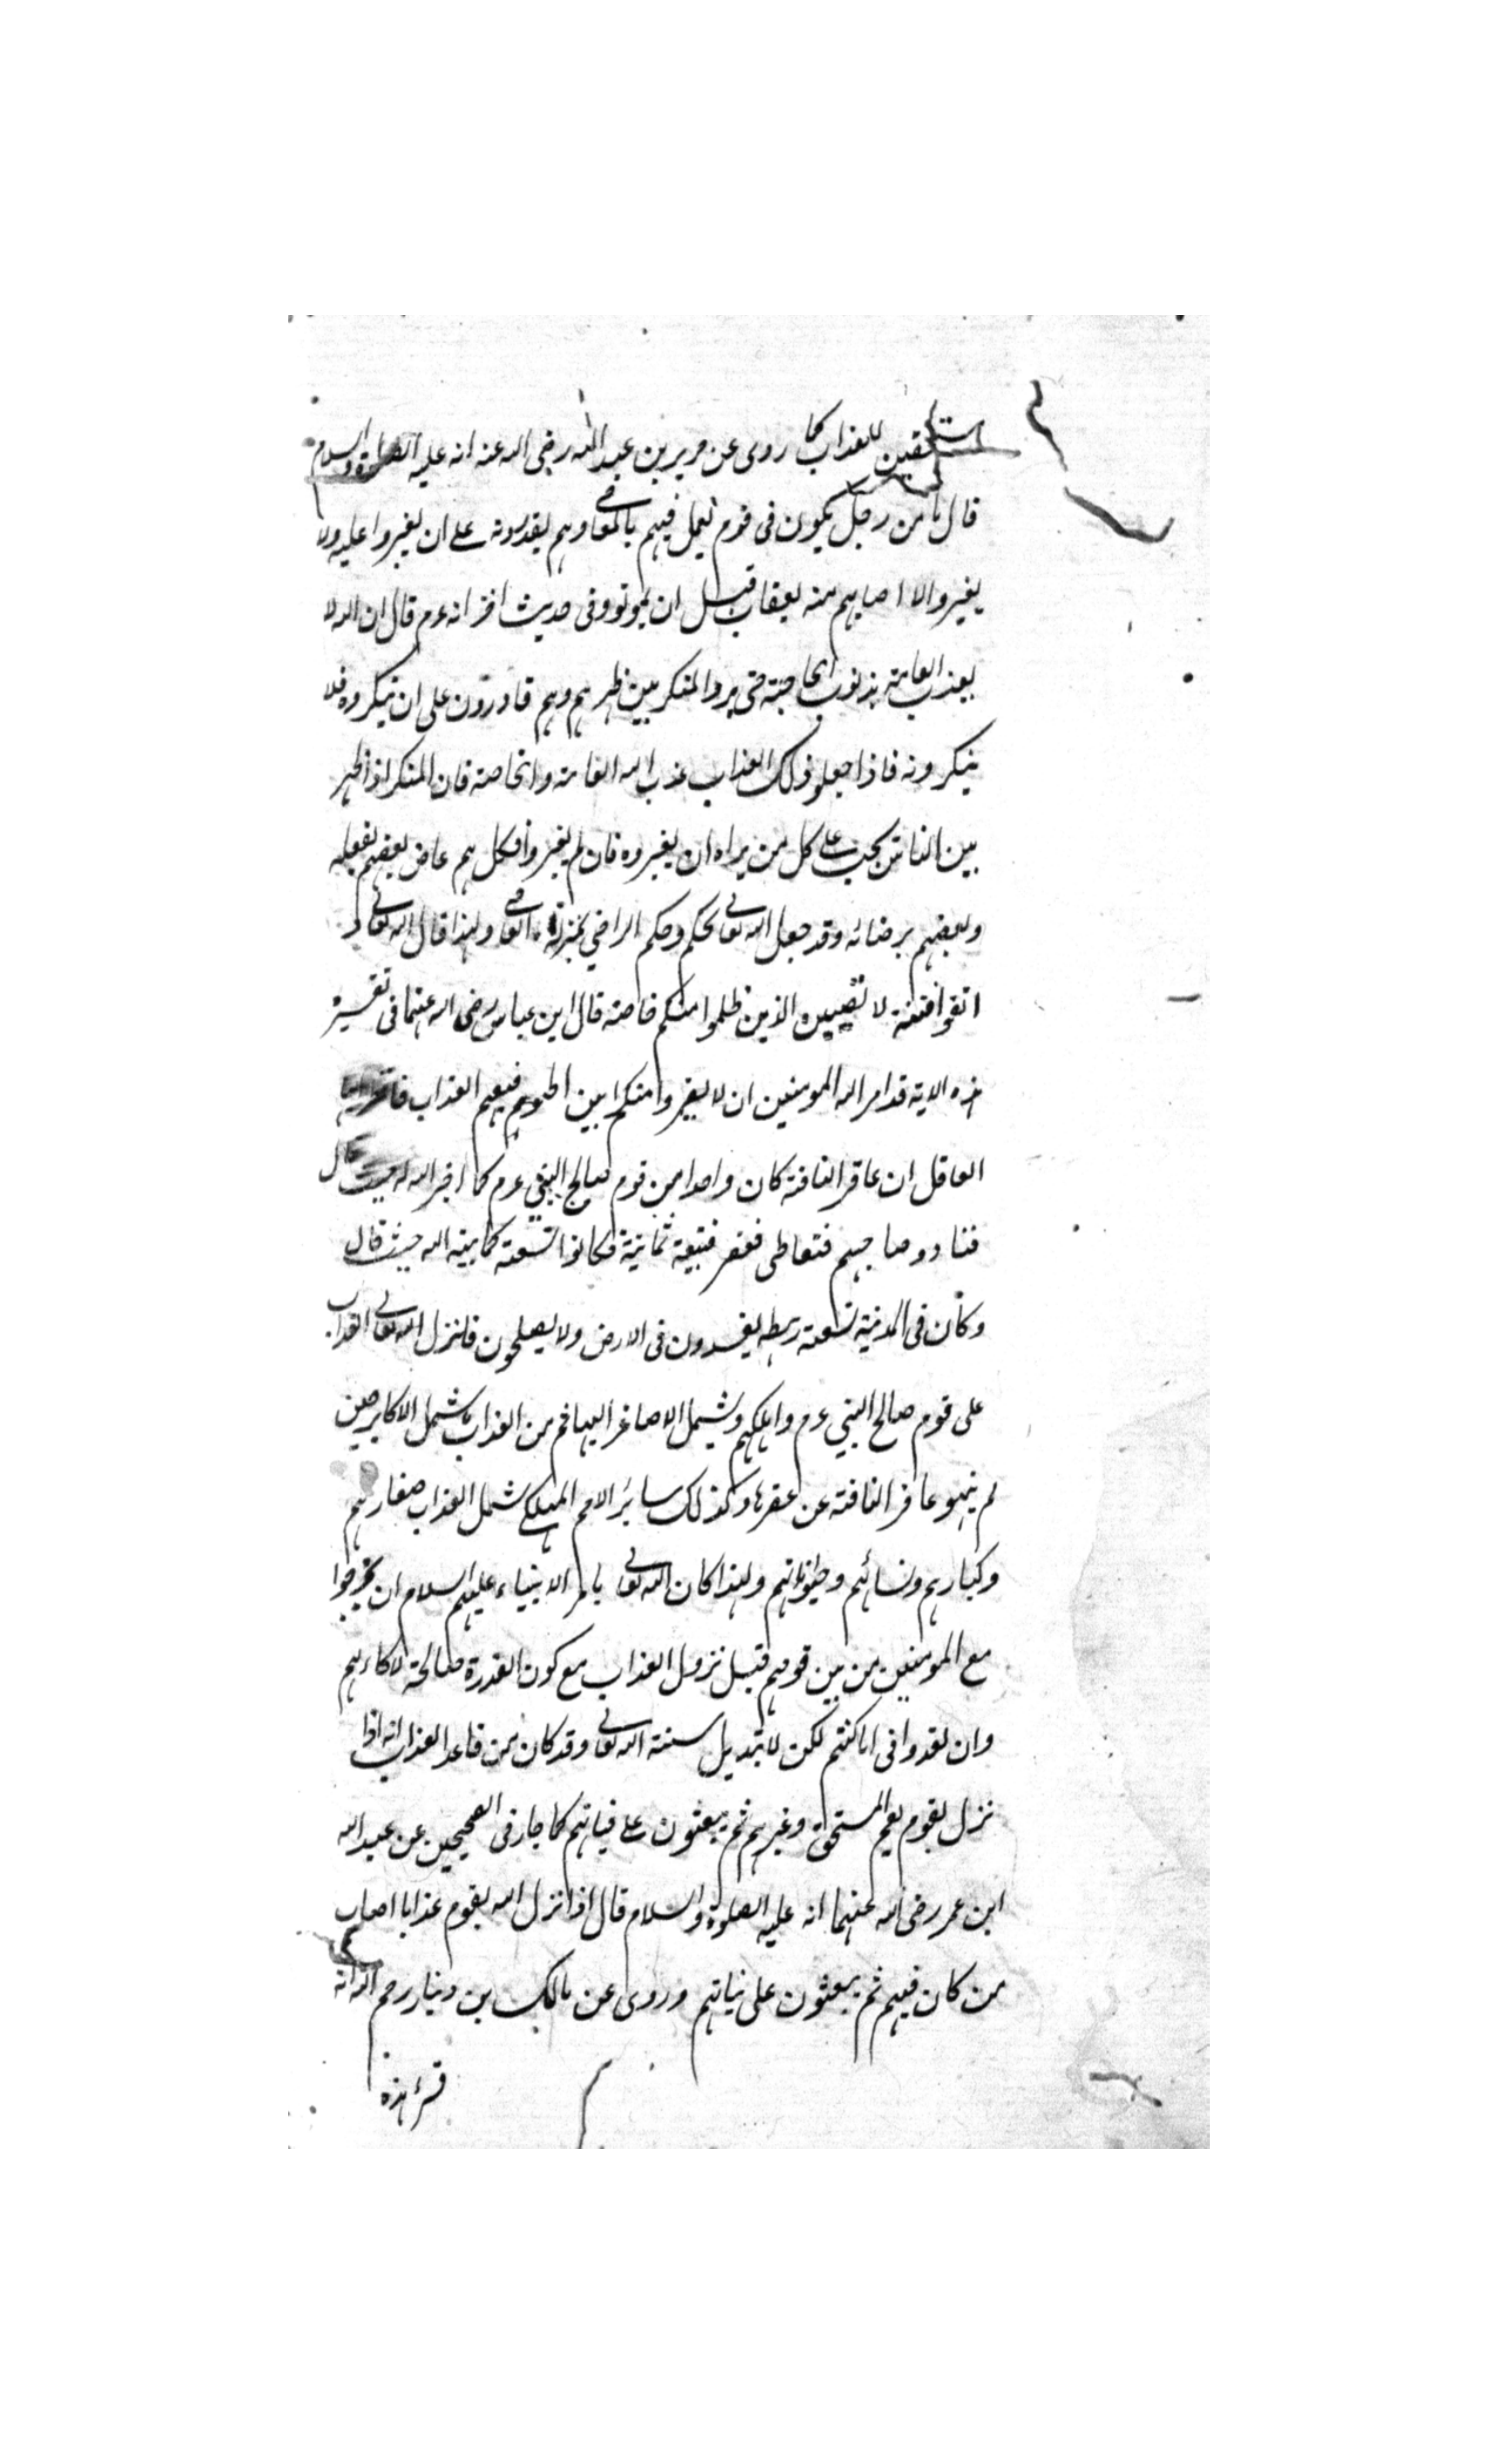 مستحقين للعذاب كما روى عن جرير بن عبد الله رضى الله عنه انه عليه الصلوة والسلام
قال ما من رجل يكون فى قوم يعمل فيهم بالمعاصى وهم يقدرونه على ان يغيروا عليه ولا
يغيروا الا اصابهم منه بعقاب قبل ان يموتوا وفى حديث اخر انه ءم قال ان الله لا
يعذب العامة بذنوب الخاصة حتى يروا المنكر بين ظهرهم وهم قادرون على ان ينكروه فلا
ينكرونه فاذا جعلوا ذلك العذاب عذب الله العامة والخاصة فان المنكر اذا ظهر
بين الناس يجب على كل من يراه ان يغيروه فان لم يغيروا فكل هم عاص بعضهم بفعله
وبعضهم برضائه وقد جعل الله تعالى بحكم وحكم الراضى بمنزلة العاصى ولهذا قال الله تعالى و
اتقوا فتنة لا تصيبن الذين ظلموا منكم خاصة قال ابن عباس رضى الله عنهما فى تفسير
هذه الاية قد امر الله المومنين ان لا يغيروا منكرا بين اظهرهم فيعم العذاب
العاقل ان عاقر الناقة كان واحدا من قوم صالح النبى ءم كما اخبر الله له حيث قال
فنادوا صاحبهم فتعاطى فعقر فتبعه ثمانية فكانوا تسعة كما بينه الله حيث قال
وكان فى المدينة تسعة رهط يفسدون فى الارض ولا يصلحون فانزل الله تعالى العذاب
على قوم صالح النبى ءم واهلكهم وشمل الاصاغر البهائم من العذاب ما شمل الاكابر حين
لم ينهو عاقر الناقة عن عقرها وكذلك سائر الامم المهلكى شمل العذاب صغارهم
وكبارهم ونسائهم وحيواناتهم ولهذا كان الله تعالى يامر الانبياء عليهم السلام ان يخرجوا
مع المومنين من بين قومهم قبل نزول العذاب مع كون القدرة صالحة لانجاءهم
وان لقدوا فى اماكنهم لكن لا تبديل سنة الله تعالى وقد كان من قاعد العذاب انه اذا
نزل بقوم يعم المستحق وغيرهم ثم يبعثون على نياتهم كما جاء فى الصحيحين عن عبد الله
ابن عمر رضى الله عنهما انه عليه الصلوة والسلام قال اذا نزل الله بقوم عذابا اصاب
من كان فيهم ثم يبعثون على نياتهم وروى عن مالك بن دينار رحم الله انه
قرء هذه